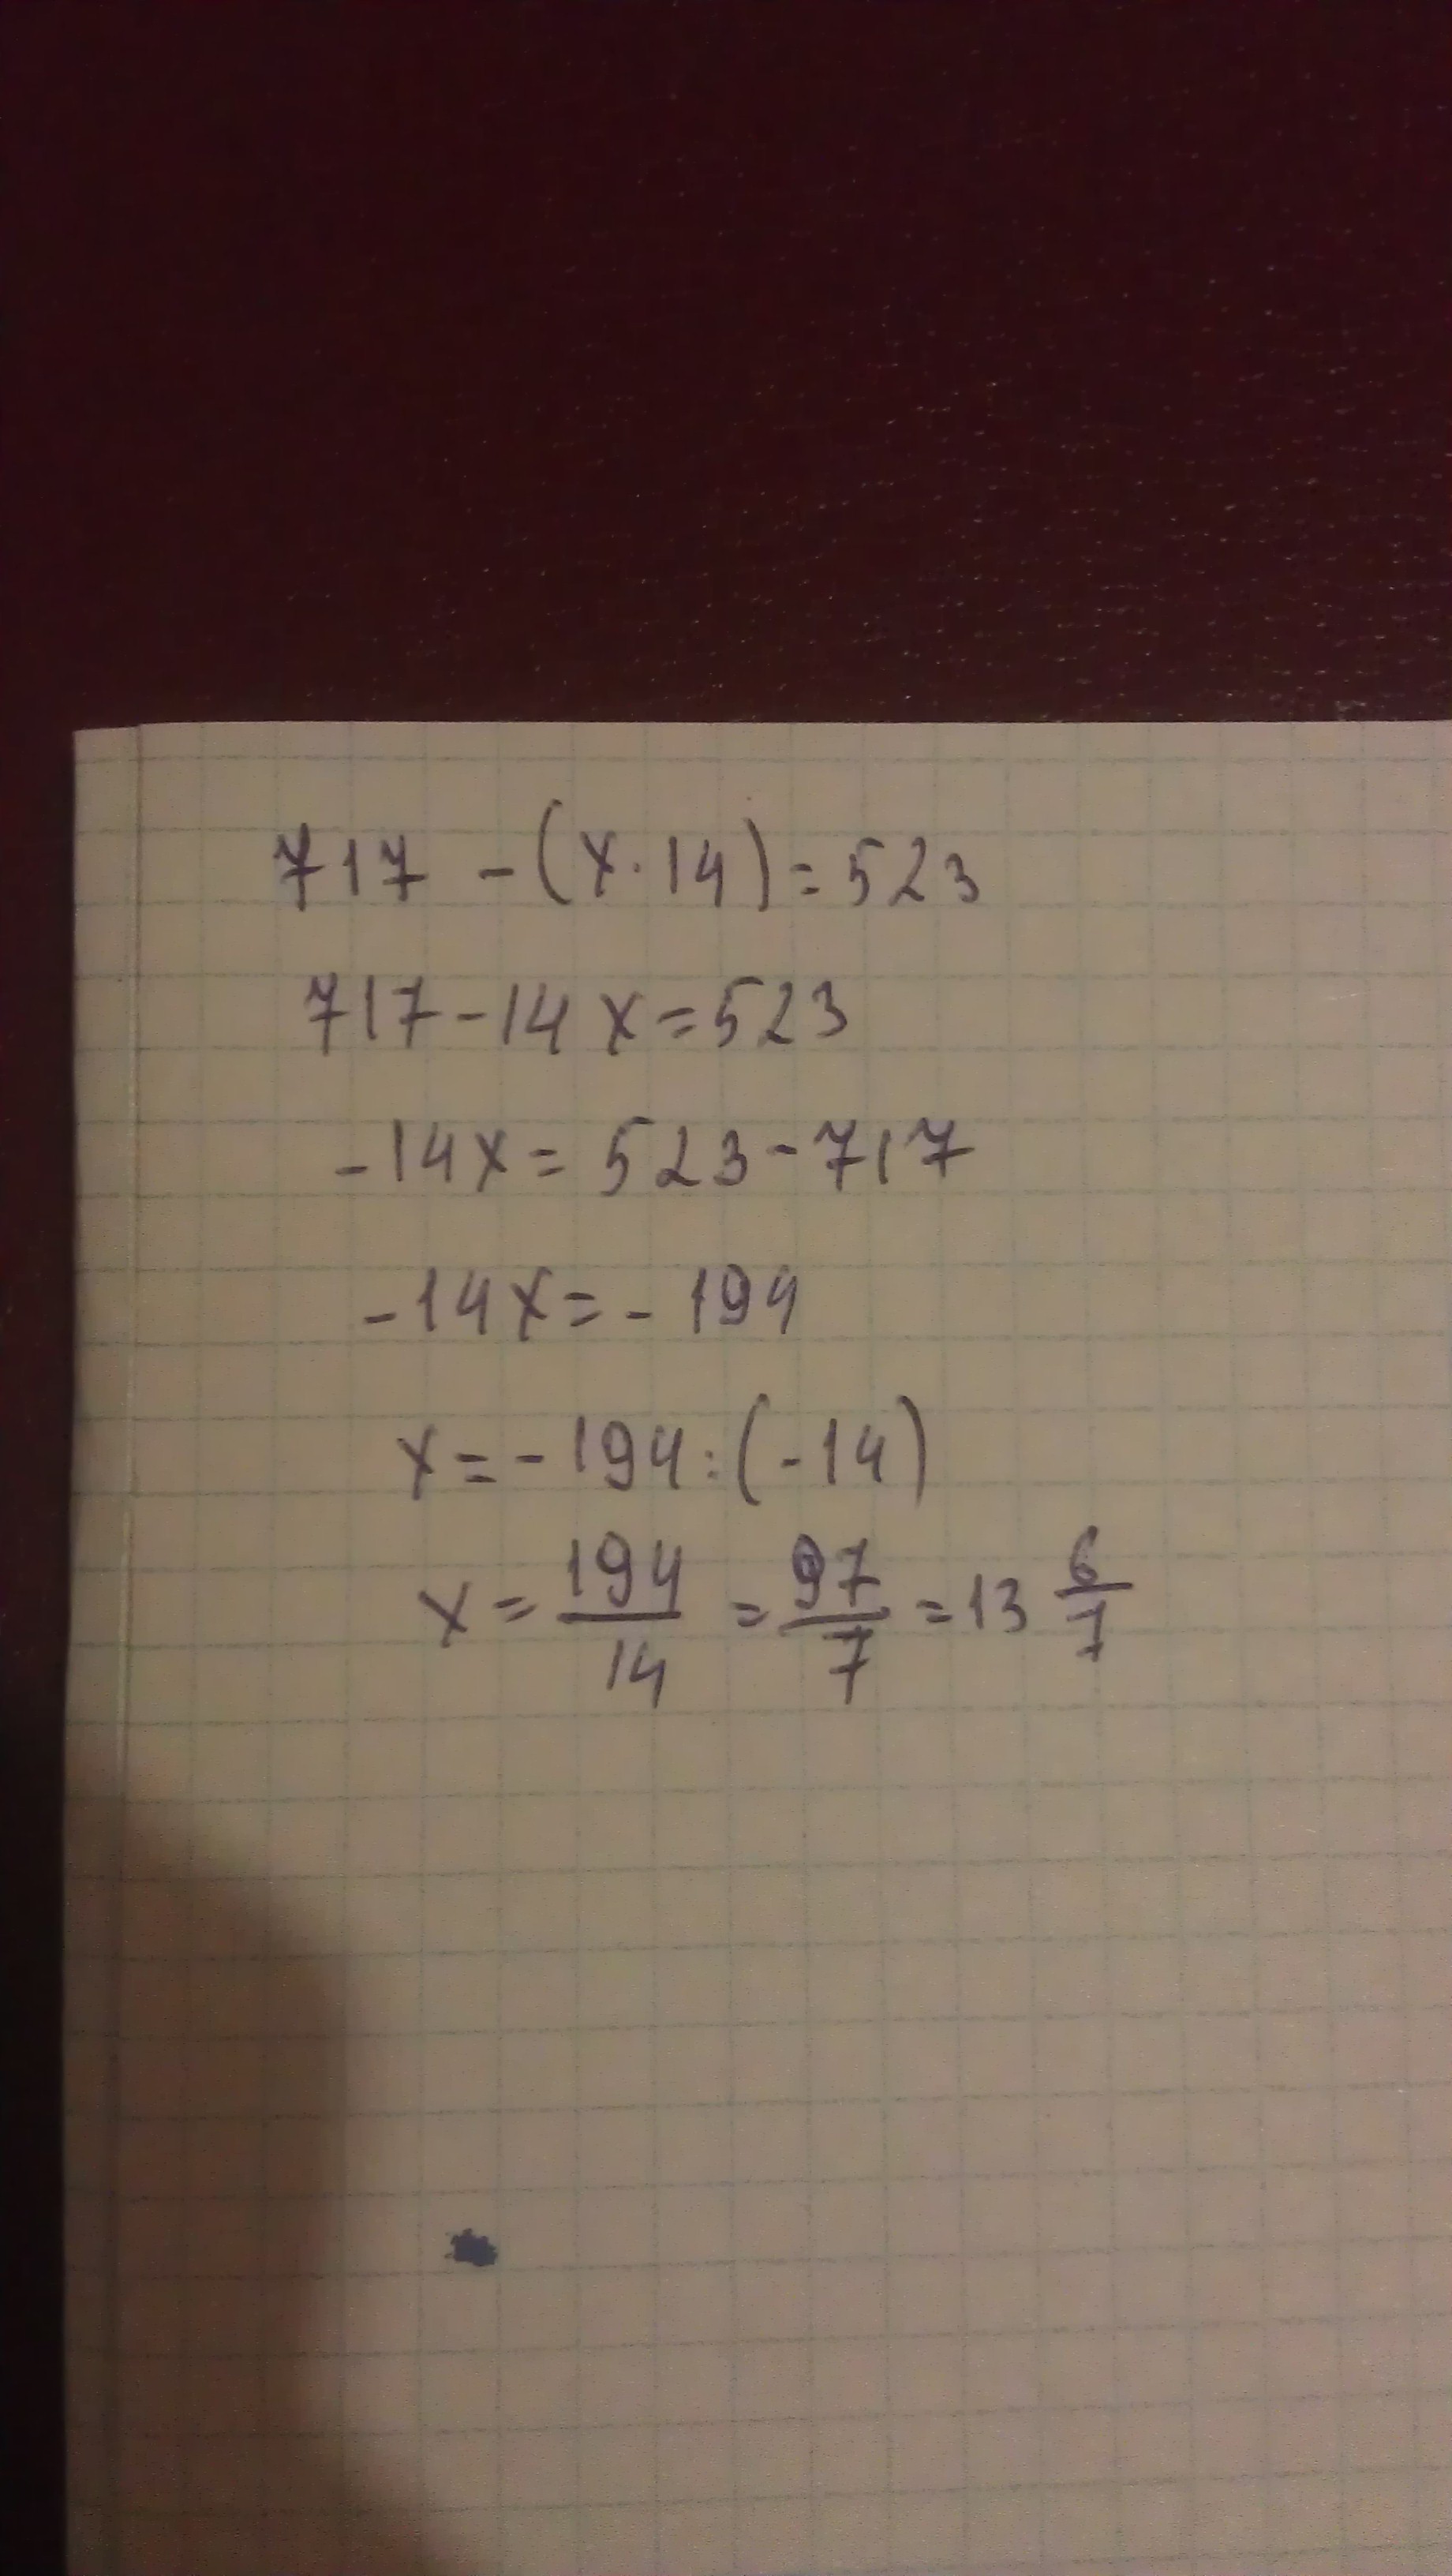 717 - (x · 14) = 523
717 - 14x = 523
-14x = 523 - 717
-14x = - 194
x = - 194 : (-14)
x = 194/14 = 97/7 = 13 6/7